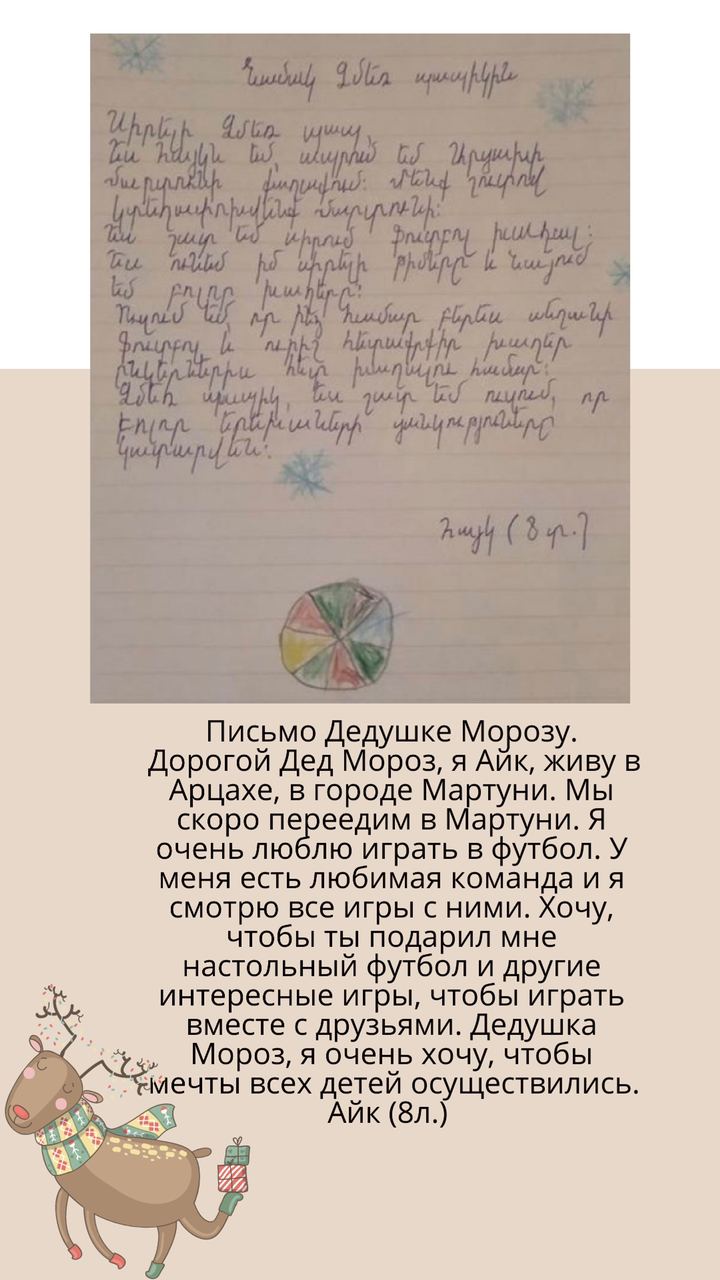 Նամակ Ձմեռ պապիկին
Սիրելի Ձմեռ պապ,
Ես Հայկն եմ, ապրում եմ Արցախի
Մարտունի քաղաքում: Մենք շուտով
կտեղափոխվենք Մարտունի:
Ես շատ եմ սիրում ֆուտբոլ խաղալ:
Ես ունեմ իմ սիրելի թիմերը և նայում
եմ բոլոր խաղերը:
Ուզում եմ, որ ինձ համար բերես սեղանի
ֆուտբոլ և ուրիշ հետաքրքիր խաղեր
ընկերներիս հետ խաղալու համար:
Ձմեռ պապիկ, ես շատ եմ ուզում, որ
բոլոր երեխաների ցանկությունները
կատարվեն:
Հայկ (8 տ.)
Письмо Дедушке Морозу.
Дорогой Дед Мороз, я Айк, живу в
Арцахе, в городе Мартуни. Мы
скоро переедим в Мартуни. Я
очень люблю играть в футбол. У
меня есть любимая команда и я
смотрю все игры с ними. Хочу,
чтобы ты подарил мне
настольный футбол и другие
интересные игры, чтобы играть
вместе с друзьями. Дедушка
Мороз, я очень хочу, чтобы
мечты всех детей осуществились.
Айк (8л.)